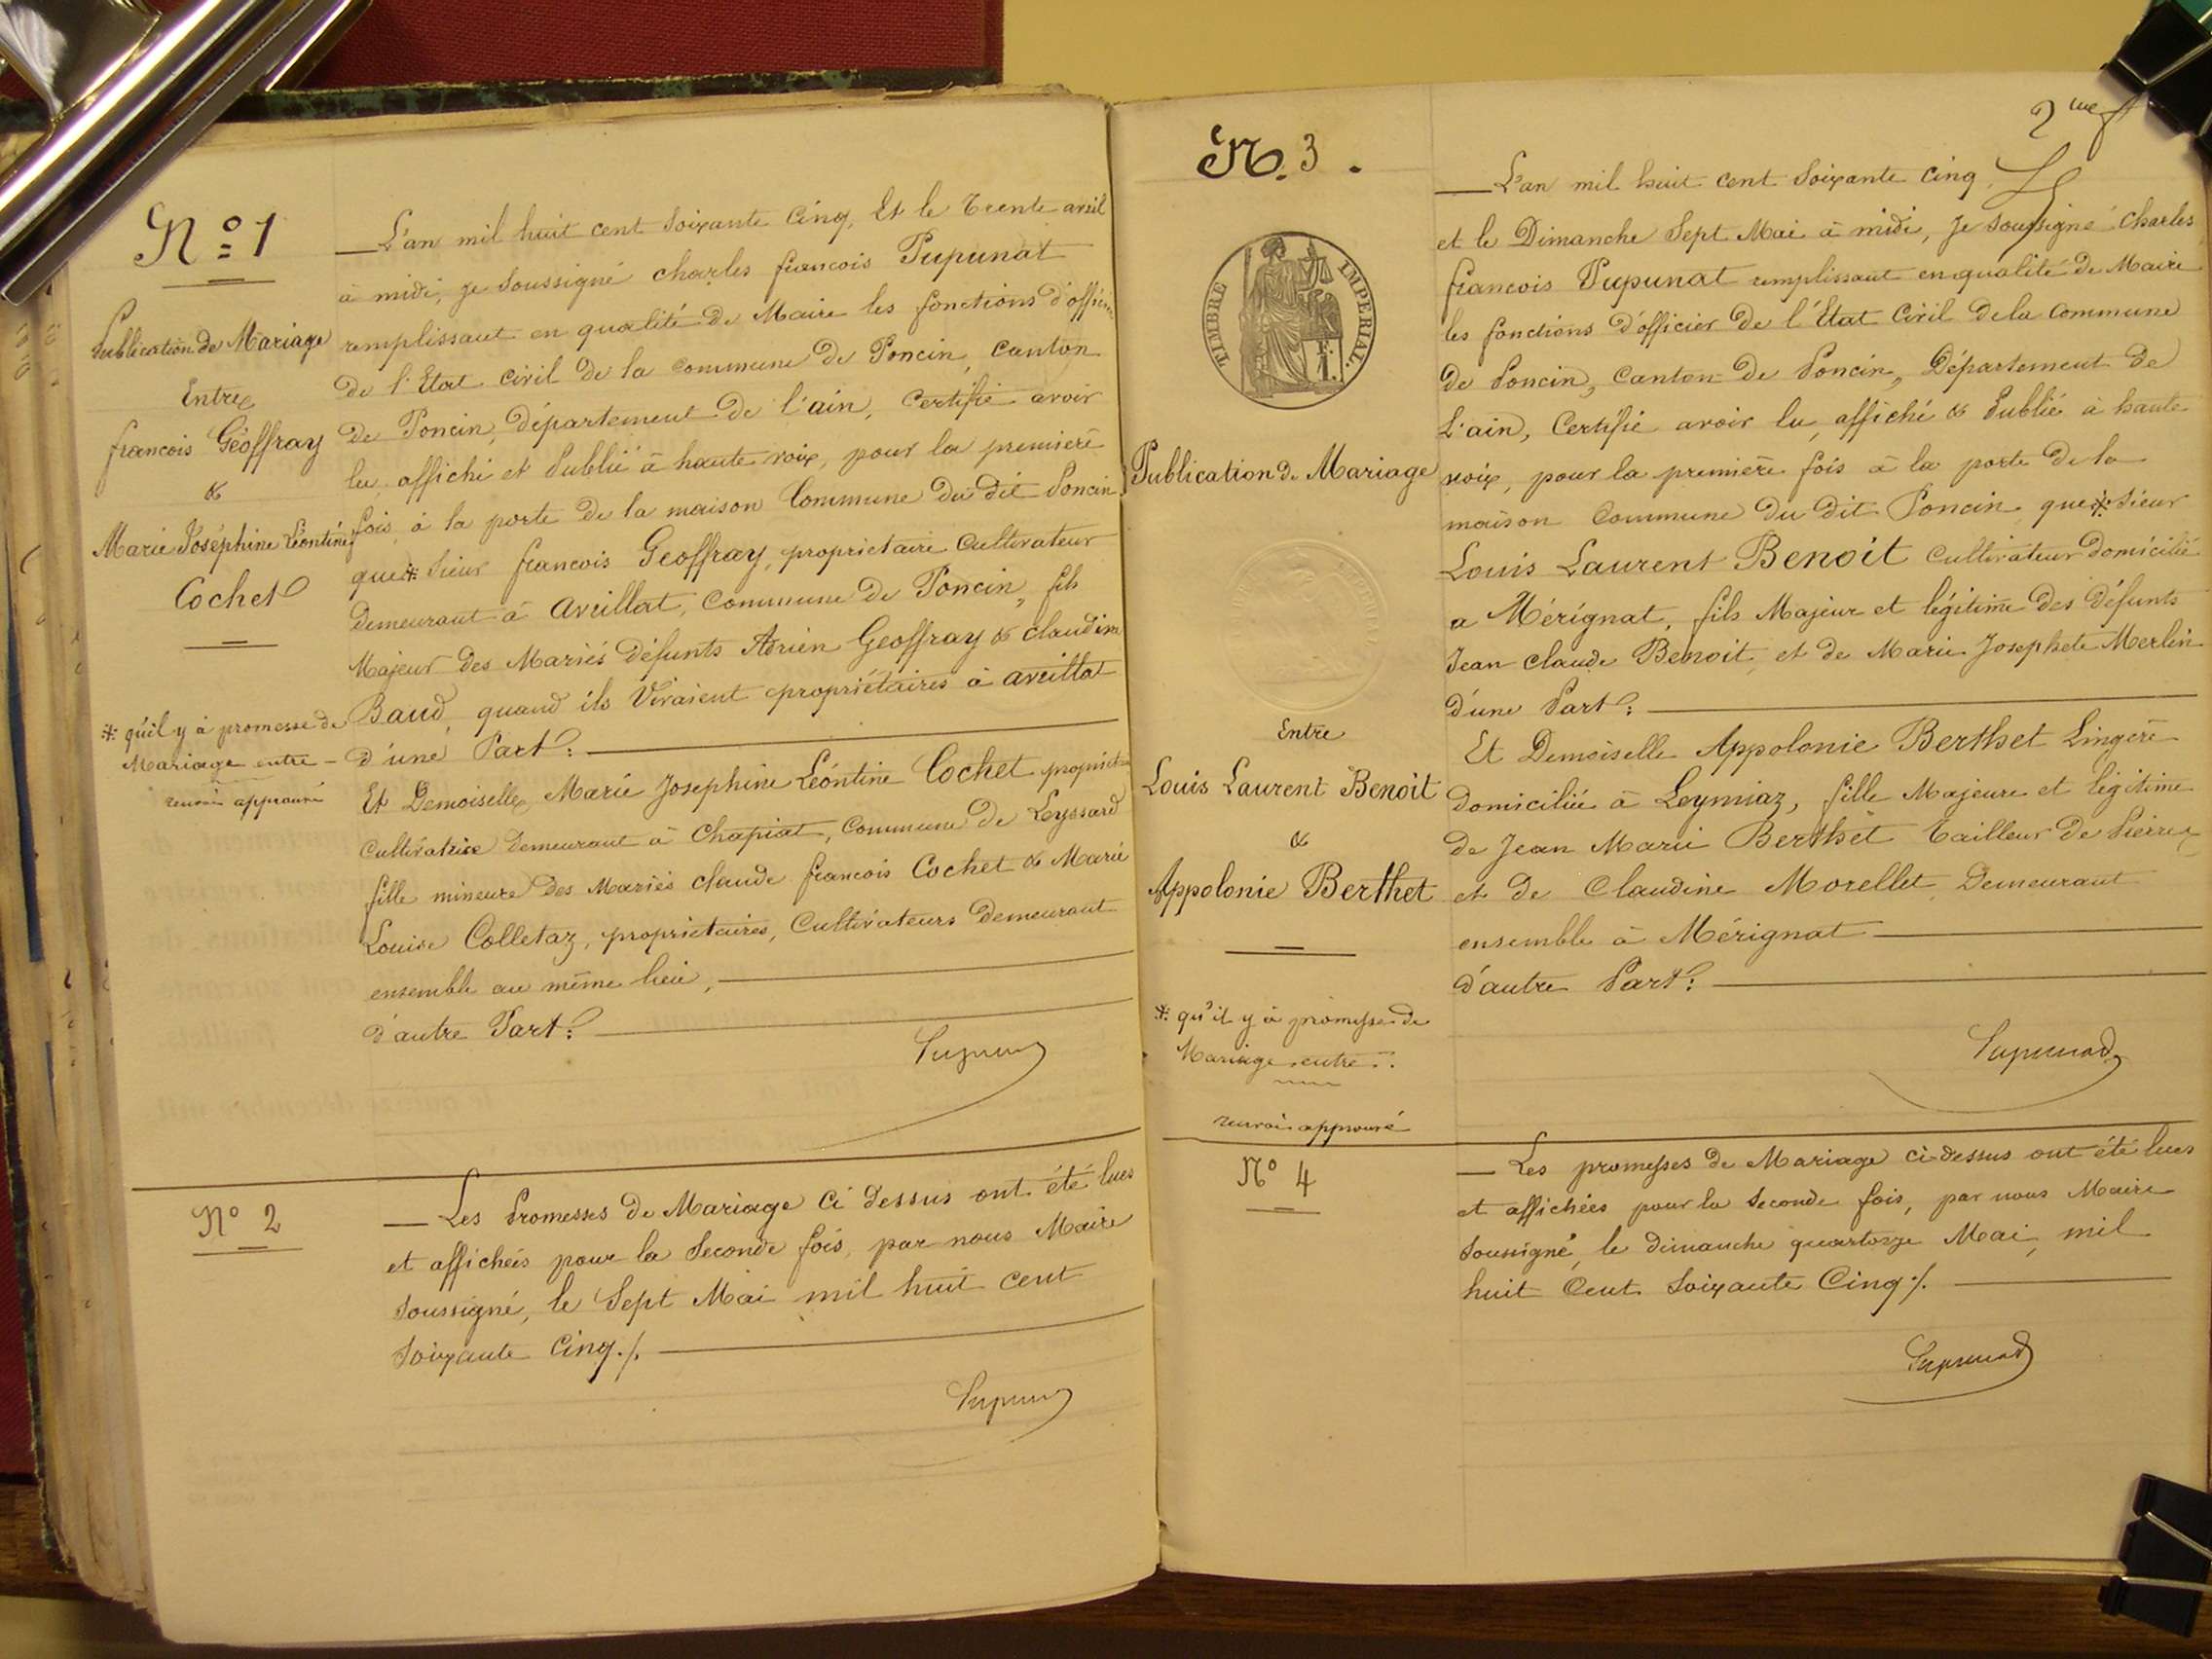 N° 1
Publication de Mariage
Entre
françois Géoffray
&
Marie Joséphine Léontine
Cochet
* qu'il y à promesse de
Mariage entre
renvoi approuvé
L'an mil huit cent Soixante Cinq, Et le trente avril
à midi, je Soussigné charles françois Pupunat
remplissant en qualité de Maire les fonctions d'officier
de l'Etat civil de la commune de Poncin, canton
de Poncin, département de l'ain, Certifie avoir
lu, affiché et Publié à haute voix, pour la première
fois, à la porte de la maison Commune du dit Poncin
que * Sieur françois Geoffray, propriétaire Cultivateur
demeurant à avrillat, Commune de Poncin, fils
Majeur des Mariés défunts Adrien Geoffray & claudine
Baud, quand ils Vivaient propriétaires à avrillat
d'une Part:
Et Demoiselle Marie Josephine Léontine Cochet propriét
Cultivatrice demeurant à Chapiat, Commune de Leyssard
fille mineure des Mariés claude françois Cochet & Marie
Louise Colletaz, propriétaires, Cultivateurs demeurant
ensemble au même lieu,
d'autre Part:
N° 2
Les Promesses de Mariage Ci dessus ont été lues
et affichées pour la Seconde fois, par nous Maire
Soussigné, le Sept Mai mil huit cent
Soixante Cinq ./.
2me f
N. 3.
TIMBRE IMPERIAL.
Publication de Mariage
Entre
Louis Laurent Benoit
&
Appolonie Berthet
* qu'il y à promesse de
Mariage entre.
renvoi approuvé
L'an mil huit cent Soixante Cinq,
et le Dimanche Sept Mai à midi, Je Soussigné Charles
françois Pupunat remplissant en qualité de Maire
les fonctions d'officier de l'Etat Civil de la Commune
de Poncin, Canton de Poncin, Département de
L'ain, Certifie avoir lu, affiché & Publié à haute
voix, pour la première fois à la porte de la
maison Commune du dit Poncin que * Sieur
Louis Laurent Benoit Cultivateur domicilié
a Mérignat, fils Majeur et légitime des défunts
Jean Claude Benoit, et de Marie Josephete Merlin
d'une Part:
Et Demoiselle Appolonie Berthet Lingère
domiciliée à Leymiaz, fille Majeure et légitime
de Jean Marie Berthet tailleur de Pierre
et de Claudine Morellet Demeurant
ensemble à Mérignat
d'autre Part:
Pupunat
N° 4
Les promesses de Mariage ci-dessus ont été lues
et affichées pour la Seconde fois, par nous Maire
Soussigné, le dimanche quatorze Mai, mil
huit Cent Soixante Cinq ./.
Pupunat